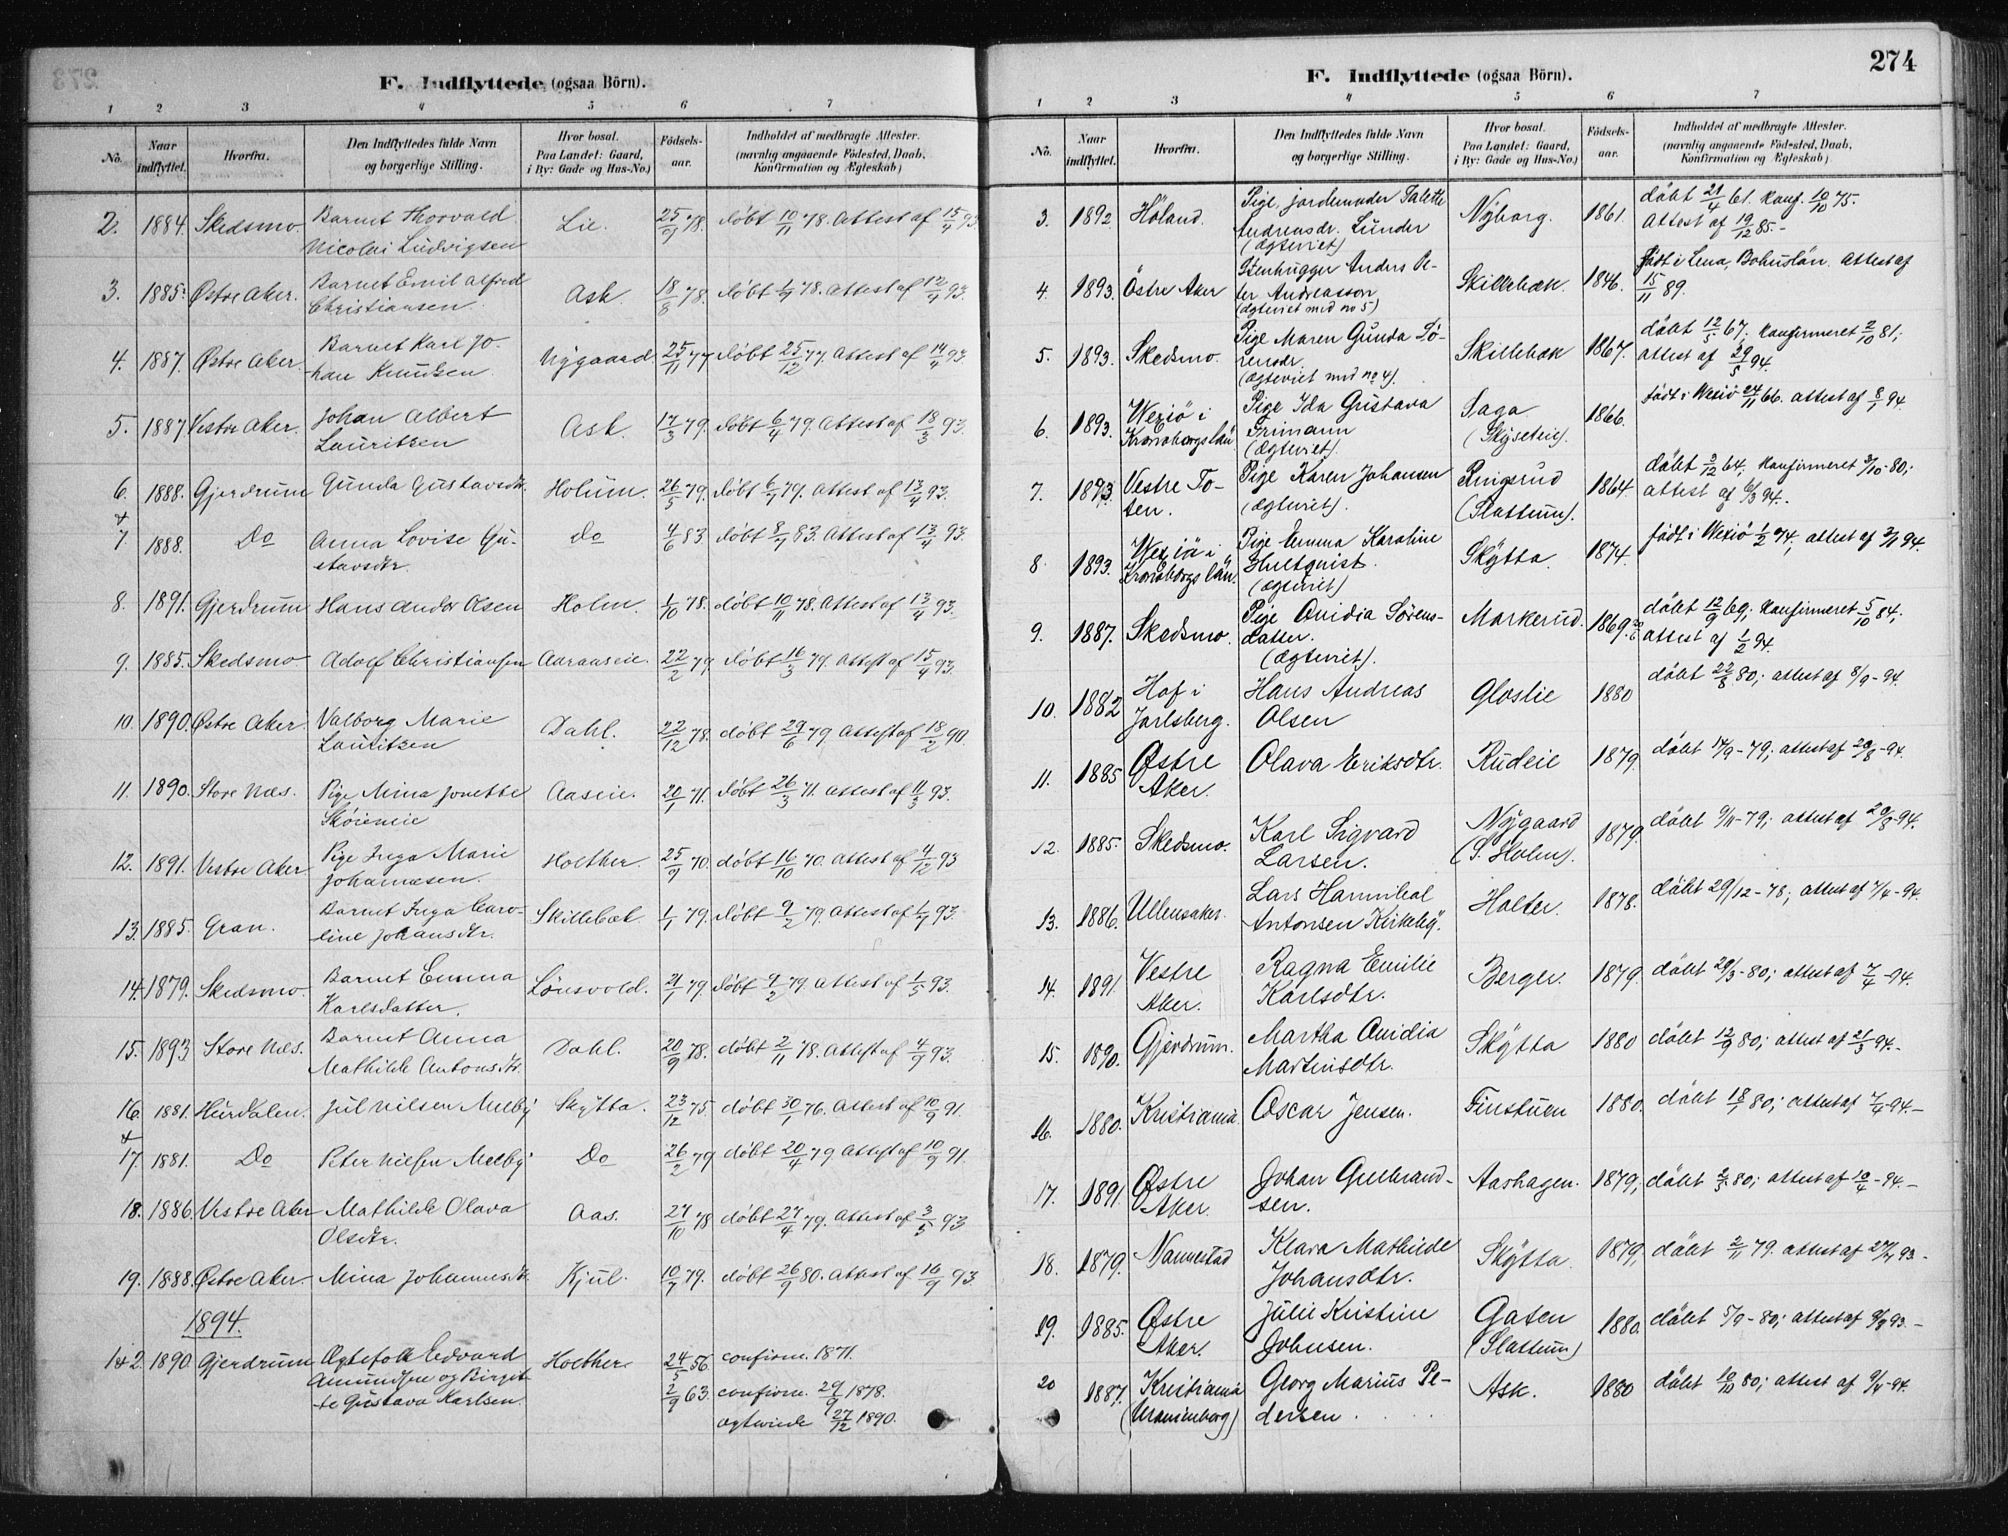 F. Indflyttede (ogsaa Börn).
1 2 3 4 5 6 7
No. Naar indflyttet. Hvorfra. Den Indflyttedes fulde Navn og borgerlige Stilling. Hvor bosat. Paa Landet: Gaard, i By: Gade og Hus-No.) Födsels-aar. Indholdet af medbragte Attester. (navnlig angaaende Födested, Daab, Konfirmation og Ægteskab)
2. 1884. Skedsmo. Barnet Thorvald Nicolai Ludvigsen Lie. 25/9 78. döbt 10/11 78. Attest af 15/4 93.
3. 1885. Østre Aker. Barnet Emil Alfred Christiansen. Ask. 18/8 78. döbt 78. Attest af 12/4 93.
4. 1887. Østre Aker. Barnet Karl Johan Knudsen. Nygaard 25/11 77 döbt 25/12 77. Attest af 14/4 93.
5. 1887 Vestre Aker. Johan Albert Lauritzen Ask. 17/3 79. döbt 6/4 79. Attest af 18/3 93.
6. 1888. Gjerdrum Gunda Gustavsdtr. Holum. 26/5 79. döbt 79. Attest af 13/4 93.
+
7 1888. Do Anna Lovise Gustavsdtr. do 4/6 83 döbt 83. Attest af 13/4 93.
8. 1891. Gjerdrum Hans Ander Olsen Holm. 1/10 78. döbt 10/11 78. Attest af 13/4 93.
9. 1885. Skedsmo Adolf Christiansen Aaraaseie. 22/2 79. döbt 16/3 79. Attest af 15/4 93.
10. 1890. Østre Aker. Valborg Marie Lauritzen Dahl. 22/12 78. döbt 29/6 79 Attest af 18/2 90.
11. 1890. Store Næs. Pige Mina Jonette Aaseie. 20/1 71. döbt 26/3 71. Attest af 11/3 93.
12. 1891. Vestre Aker Pige Inga Marie Johannesen. Holther. 25/9 70. döbt 16/10 70. Attest af 4/12 93
13. 1885. Gran. Barnet Inga Caroline Johansdtr. Skillebæk 1/1 79. döbt 9/2 79. Attest af 93.
14. 1879. Skedsmo. Barnet Emma Karlsdatter. Lönsvold. 21/1 79. döbt 9/2 79 Attest af 1/5 93.
15. 1893 Store Næs. Barnet Anna Mathilde Antonsdtr. Dahl. 20/9 78. döbt 2/11 78. Attest af 4/9 93.
16. 1881. Hurdalen. Jul Nilsen Melby Skytta. 23/12 75. döbt 30/1 76. Attest af 10/9 91.
+
17. 1881. Do Peter Nilsen Melby Do 26/2 79 döbt 20/4 79 Attest af 10/9 91.
18. 1886. Vestre Aker Mathilde Olava Olsdtr. Aas. 27/10 78 döbt 27/4 79. Attest af 3/5 93
19. 1888. Østre Aker. Mina Johannesdtr. Kjul. 10/7 79. döbt 26/9 80. Attest af 16/9 93.
1894.
1 & 2. 1890. Gjerdrum Ægtefolk Edvard Amundsen og Birgitte Gustava Karlsen. Holther 24/5 56. confirm. 1871.
2/9 63. confirm. 29/9 1878.
ægtevied 27/12 1890.
274
F. Indflyttede (ogsaa Börn).
1 2 3 4 5 6 7
No. Naar indflyttet. Hvorfra. Den Indflyttedes fulde Navn og borgerlige Stilling. Hvor bosat. Paa Landet: Gaard, i By: Gade og Hus-No.) Födsels-aar. Indholdet af medbragte Attester. (navnlig angaaende Födested, Daab, Konfirmation og Ægteskab)
3. 1892. Höland. Pige, jordemoder Talette Andreasdr. Lunder (ægteviet) Nyborg. 1861. döbt 21/4 61. Konf. 10/10 75. Attest af 19/12 85.-
4. 1893. Östre Aker Stenhugger Anders Peter Andreasson (ægteviet med no 5) Skillebæk. 1846. født i Lena, Bohuslän. Attest af 15/11 89.
5. 1893. Skedsmo. Pige Maren Gunda Sörensdr. (ægteviet med no 4). Skillebæk 1867. döbt 12/5 67; Konfirmeret 2/10 81; attest af 29/5 94.
6. 1893. Wexiö i Kronobergs län Pige Ida Gustava Grimann (ægteviet). Saga (Skyseteie). 1866. født i Wexiö 24/11 66. attest af 8/1 94.
7. 1893. Vestre Toten. Pige Karen Johansen (ægteviet). Ringsrud (Slattum). 1864. döbt 64; Konfirmeret 3/10-80; attest af 6/3 94.
8. 1893. Wexiö i Kronobergs län. Pige Emma Karoline Hultquist. (ægteviet) Skytta. 1874. født i Wexiö 1/2 74; attest af 94.
9. 1887. Skedsmo. Pige Ovidia Sørensdatter. (ægteviet). Markerud. 1869. döbt 12/9 69; Konfirmeret 5/10 84; attest af 1/2 94.
10. 1882 Hof i Jarlsberg. Hans Andreas Olsen Gloslie 1880 döbt 22/8 80; attest af 8/9-94.
11. 1885 Østre Aker. Olava Eriksdtr. Rudeie 1879. döbt 14/9-79; attest af 29/8-94.
12. 1885. Skedsmo. Karl Sigvard Larsen. Nygaard (S. Holm). 1879. döbt 9/11-79; attest af 29/8-94.
13. 1886. Ullensaker. Lars Hannibal Antonsen Kirkeby. Holter. 1878. döbt 29/12-78; attest af 7/4-94.
14. 1891. Vestre Aker. Ragna Emilie Karlsdtr. Berger. 1879. döbt 29/3-80; attest af 7/4-94.
15. 1890. Gjerdrum. Martha Ovidia Martinsdtr. Skytta 1880 döbt 12/9 80; attest af 21/3 94.-
16. 1880. Kristiania Oscar Jensen. Finstuen 1880. döbt 18/1 80; attest af 7/4-94.-
17. 1891 Østre Aker. Johan Gulbrandsen. Aashagen. 1879; döbt 80; attest af 10/4-94.-
18. 1879. Nannestad Klara Mathilde Johansdtr. Skytta 1879; döbt 2/11 79. attest af 93.-
19. 1885. Østre Aker. Julie Kristine Johnsen. Gaten (Slattum) 1880. döbt 5/9-80; attest af 93.-
20 1887. Kristiania (Uranienborg) Georg Marius Pedersen. Ask. 1880 döbt 10/10 80; attest af 9/4-94.